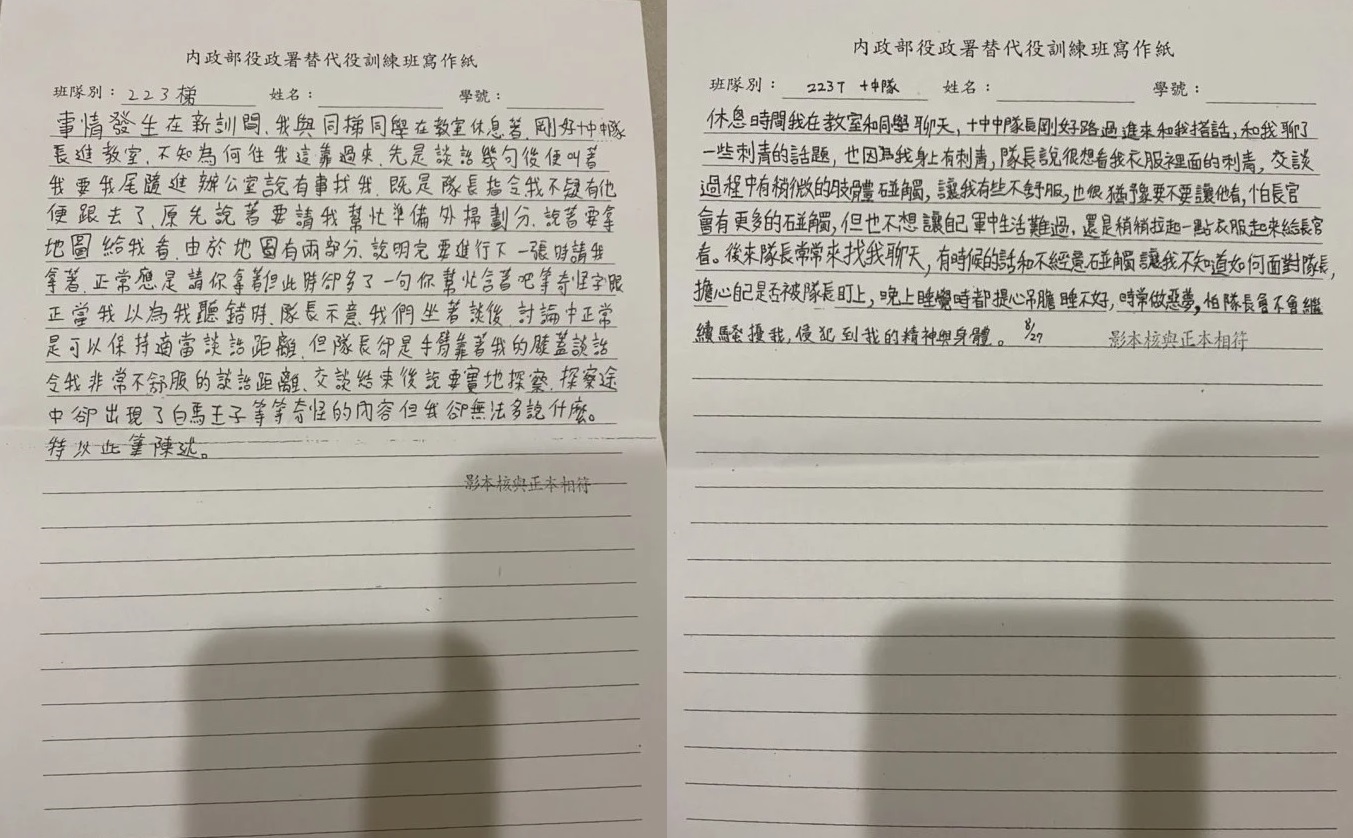 內政部役政署替代役訓練班寫作紙
班隊別：223梯 姓名： 學號：
事情發生在新訓間，我與同梯同學在教室休息著，剛好十中中隊
長進教室，不知為何往我這靠過來，先是談話幾句後便叫著
我要我尾隨進辦公室說有事找我，既是隊長指令我不疑有他
便跟去了，原先說著要請我幫忙準備外掃劃分，說著要拿
地圖給我看，由於地圖有兩部分，說明完要進行下一張時請我
拿著，正常應是請你拿著但此時卻多了一句你幫忙含著吧等奇怪字眼
正當我以為我聽錯時，隊長示意我們坐著談後，討論中正常
是可以保持適當談話距離，但隊長卻是手臂靠著我的膝蓋談話
令我非常不舒服的談話距離，交談結束後說要實地探察，探察途
中卻出現了白馬王子等等奇怪的內容但我卻無法多說什麼。
特以此筆陳述。
影本核與正本相符
內政部役政署替代役訓練班寫作紙
班隊別：223T 十中隊 姓名： 學號：
休息時間我在教室和同學聊天，十中中隊長剛好路過進來和我搭話，和我聊了
一些刺青的話題，也因為我身上有刺青，隊長說很想看我衣服裡面的刺青，交談
過程中有稍微的肢體碰觸，讓我有些不舒服，也很猶豫要不要讓他看，怕長官
會有更多的碰觸，但也不想讓自己軍中生活難過，還是稍稍拉起一點衣服起來給長官
看。後來隊長常常來找我聊天，有時候的話和不經意碰觸讓我不知道如何面對隊長，
擔心自己是否被隊長盯上，晚上睡覺時都提心吊膽睡不好，時常做惡夢，怕隊長會不會繼
續騷擾我，侵犯到我的精神與身體。8/27
影本核與正本相符